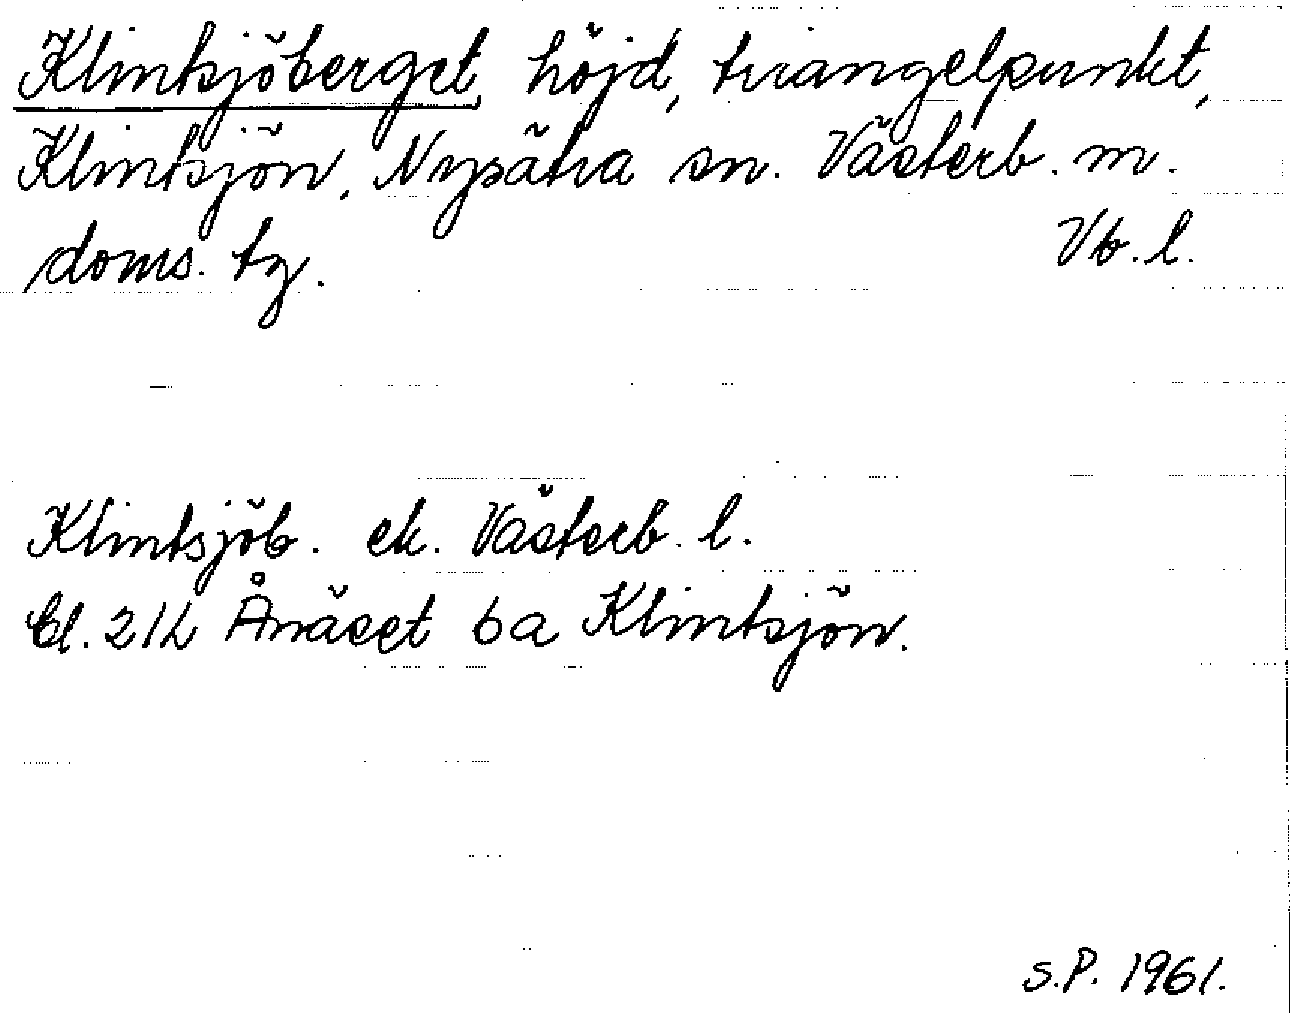 Klintsjöberget, höjd, triangelpunkt,
Klintsjön, Nysätra sn. Västerb. m.
doms. tg. Vb. l.
Klintsjöb. ek. Västerb. l.
Bl. 21L Ånäset 6a Klintsjön.
S.P. 1961.